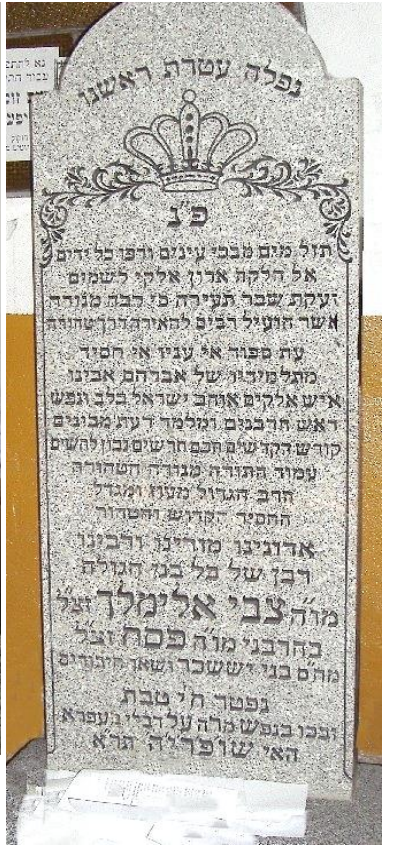 נפלה עטרת ראשנו
פ״נ
תזל מים מבבי עינים ורפו כל ידים
אל הלקח ארון אלקי לשמים
זעקת שבר תעירה כי כבה מנורה
אשר הועיל רבים להאירה דרך טהורה
עת ספוד אי עניו אי חסיד
מתלמידיו של אברהם אבינו
איש אלקים אוהב ישראל בלב ונפש
ראש הרבנים ומלמד דעת מבונים
קודש הקדשים חכם חרשים נבון לחשים
עמוד התורה מנורה הטהורה
הרב הגדול מעוז ומגדל
החסיד הקדוש והטהור
אדונינו מורינו ורבינו
רבן של כל בני הגולה
מו״ה צבי אלימלך זצ״ל
בהרבני מו״ה פסח זצ״ל
מח״ס בני יששכר ושאר חיבורים
נפטר ח״י טבת
ובכו בנפש מרה על דבלי בעפרא
האי שופריה תר״א